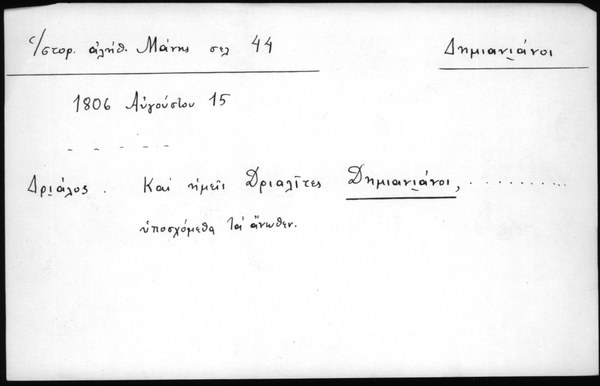 Ἱστορ. ἀλήθ. Μάνης σελ 44 Δημιανιάνοι
1806 Αὐγούστου 15
- - - - -
Δριάλος. Καί ἡμεῖς Δριαλῖτες Δημιανιάνοι, . . . . . . . . .
ὑποσχόμεθα τά ἄνωθεν.